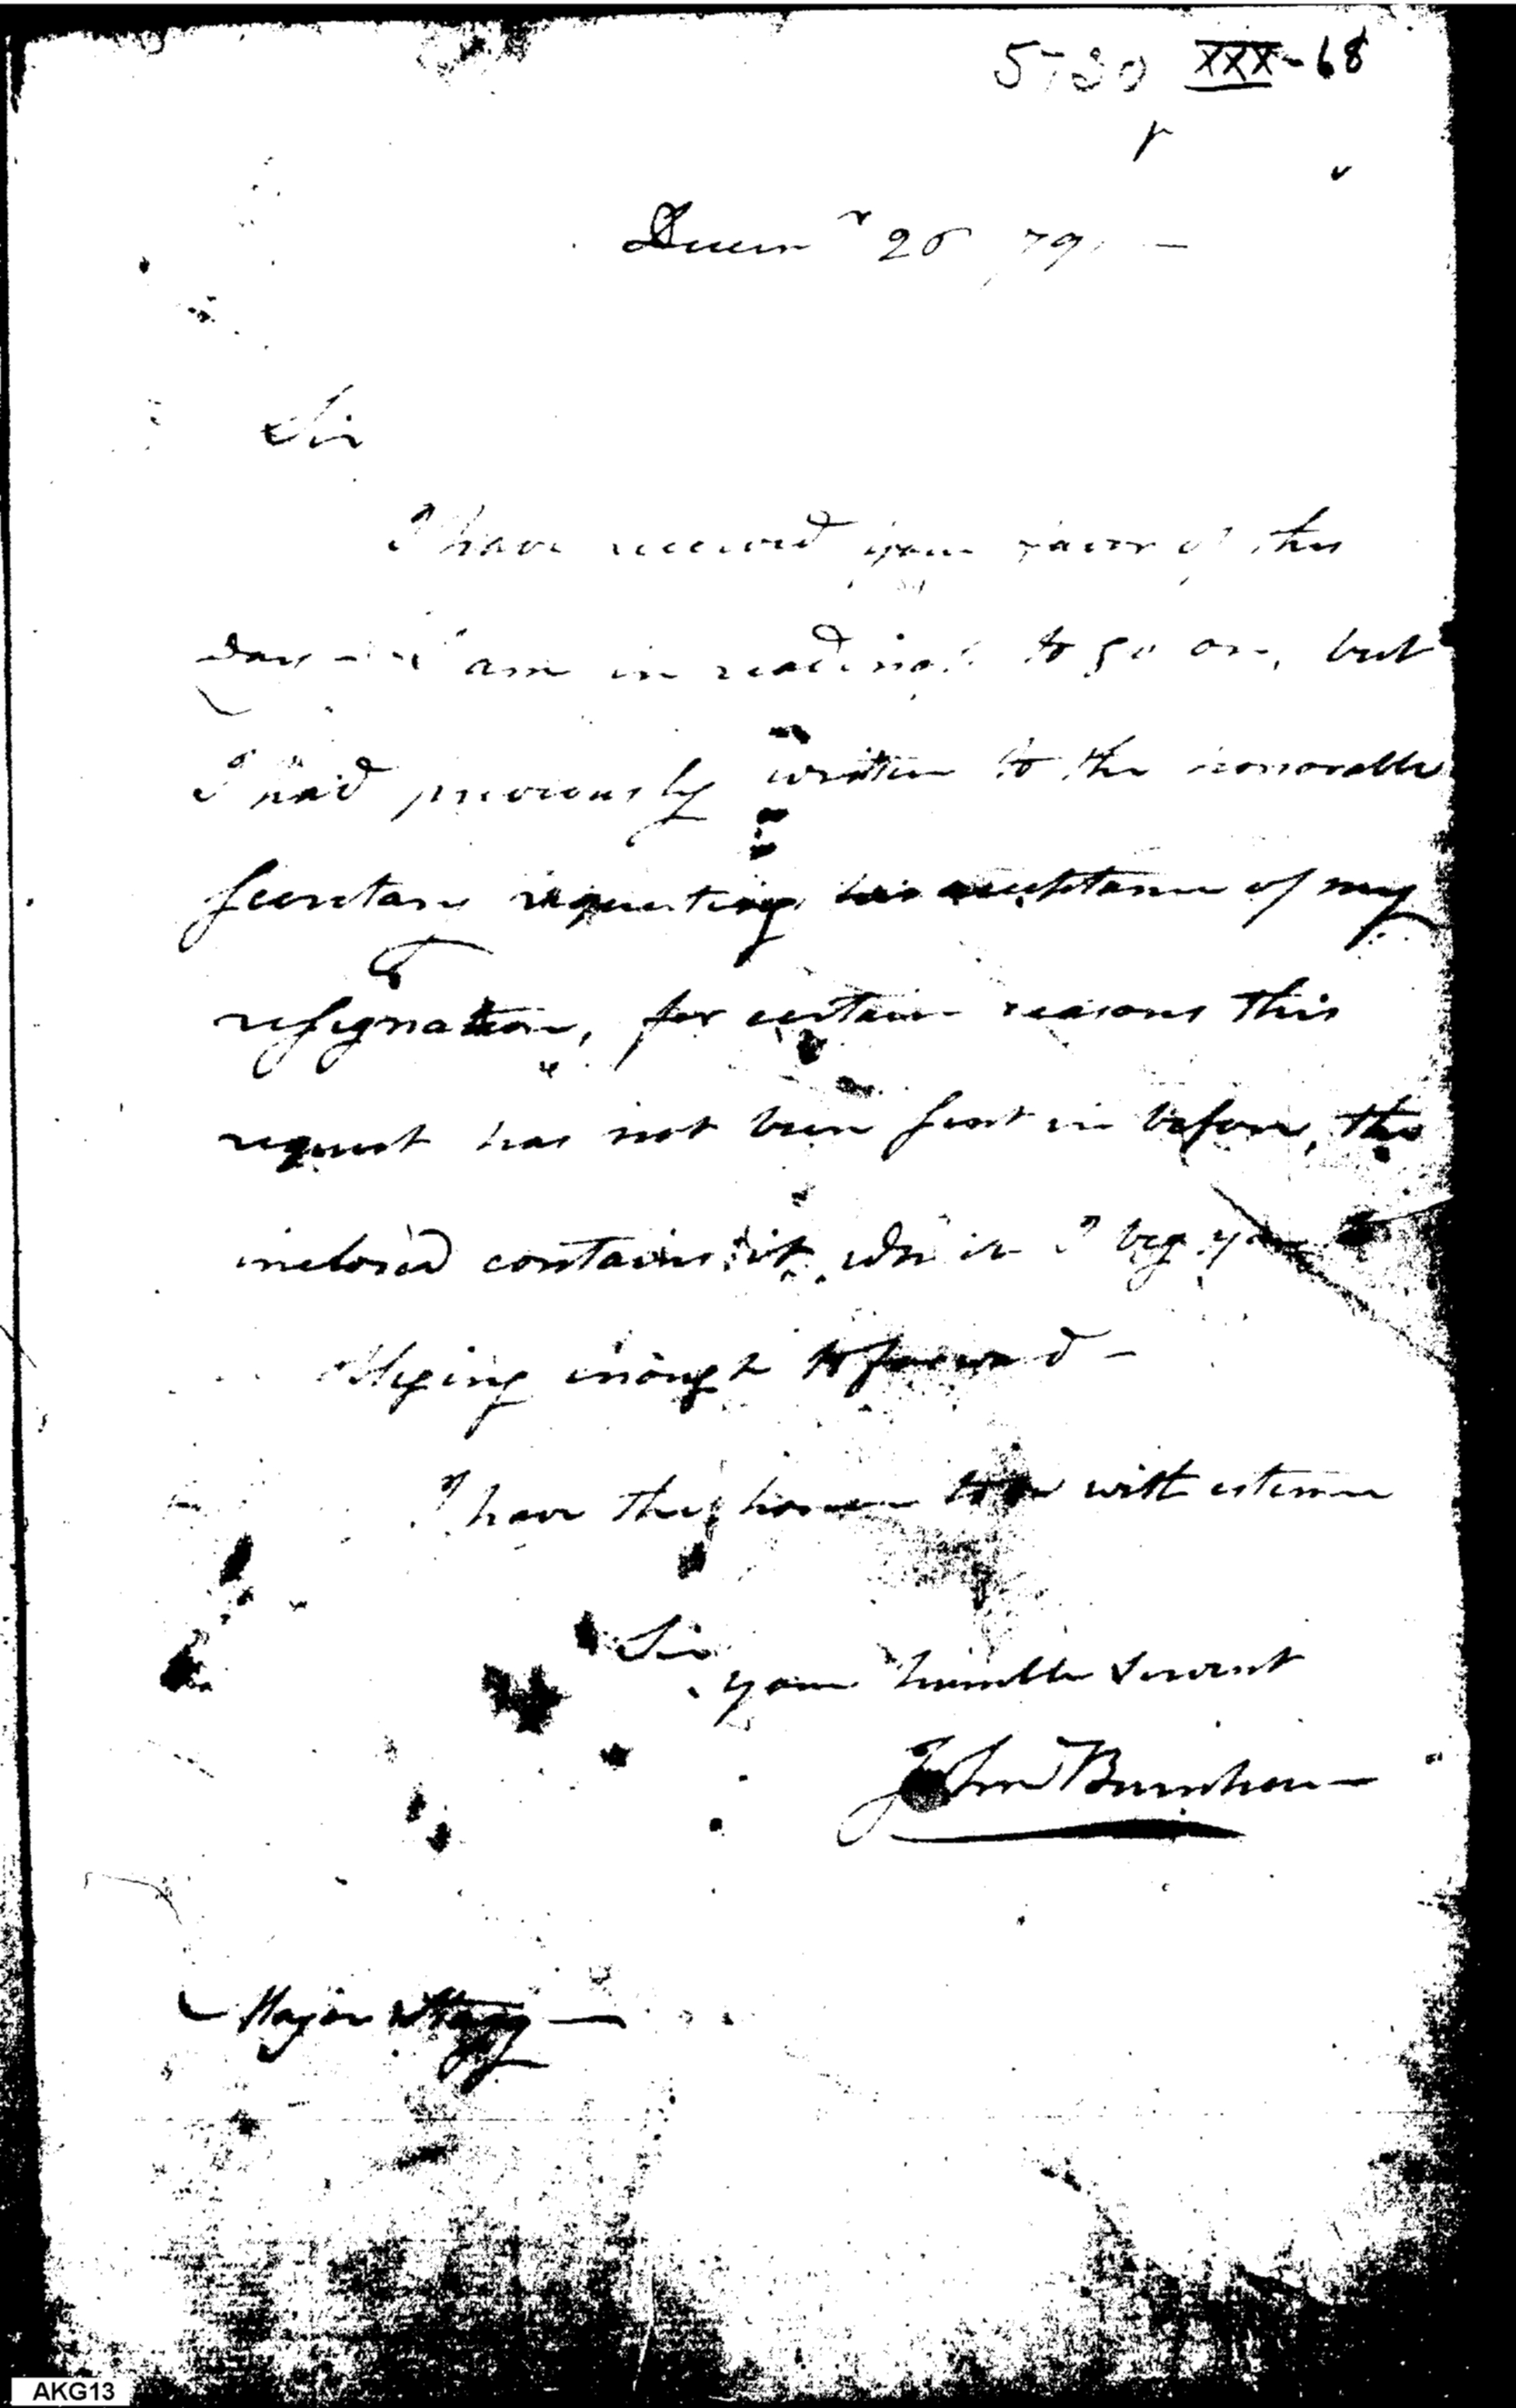 5780 XXX-68
Decem r 26 79
Sir
I have received your favor of this
day am in readiness to go on, but
I had previously written to the honorable
Secretary requesting his acceptance of my
resignation, for certain reasons this
request has not been sent in before, the
inclosed contains it which I beg you
obliging enough to forward -
I have the honor to be with esteem
Sir
your humble servant
John Burnham
Major Stagg
AKG13